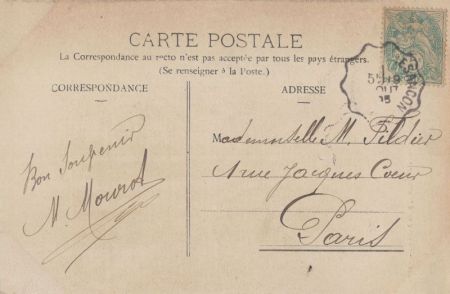 CARTE POSTALE
La Correspondance au recto n'est pas acceptée par tous les pays étrangers.
(Se renseigner à la Poste.)
CORRESPONDANCE
ADRESSE
Bon Souvenir
M. Mourot
Mademoiselle M.
4 rue Jacques Cœur
Paris